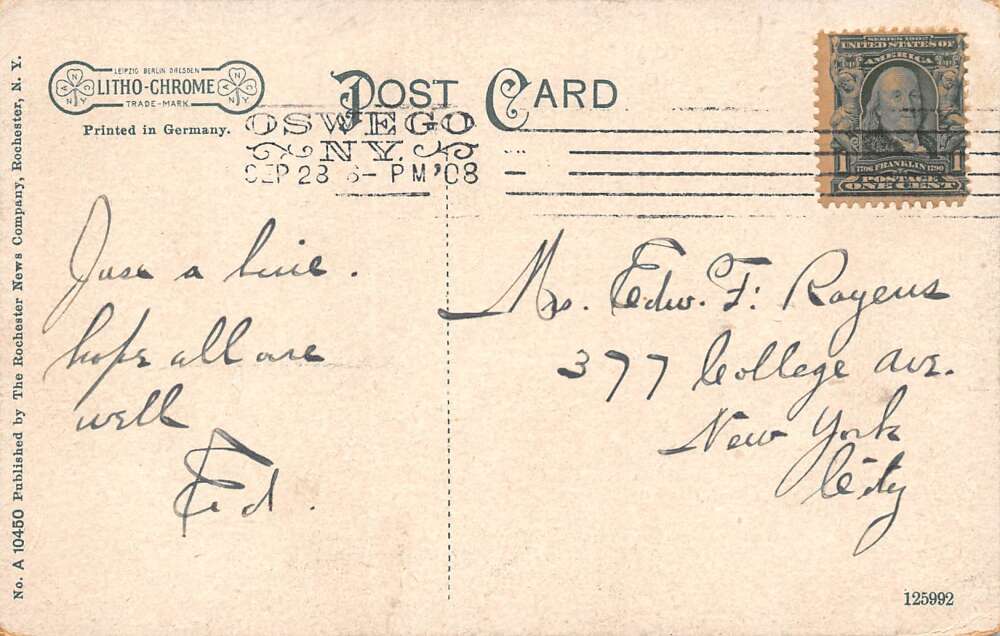 No. A 10450 Published by The Rochester News Company, Rochester, N. Y.
LEIPZIG BERLIN DRESDEN
LITHO-CHROME
TRADE-MARK
N
N
Y
C
N
N
Y
C
Printed in Germany.
POST CARD
OSWEGO
N.Y.
SEP 28 6- PM '08
SERIES 1902
UNITED STATES OF
AMERICA
1706 FRANKLIN 1790
1 1
POSTAGE
ONE CENT
Just a line.
hope all are
well
Ed.
Mrs. Edw. F. Rogers
377 College Ave.
New York
City
125992